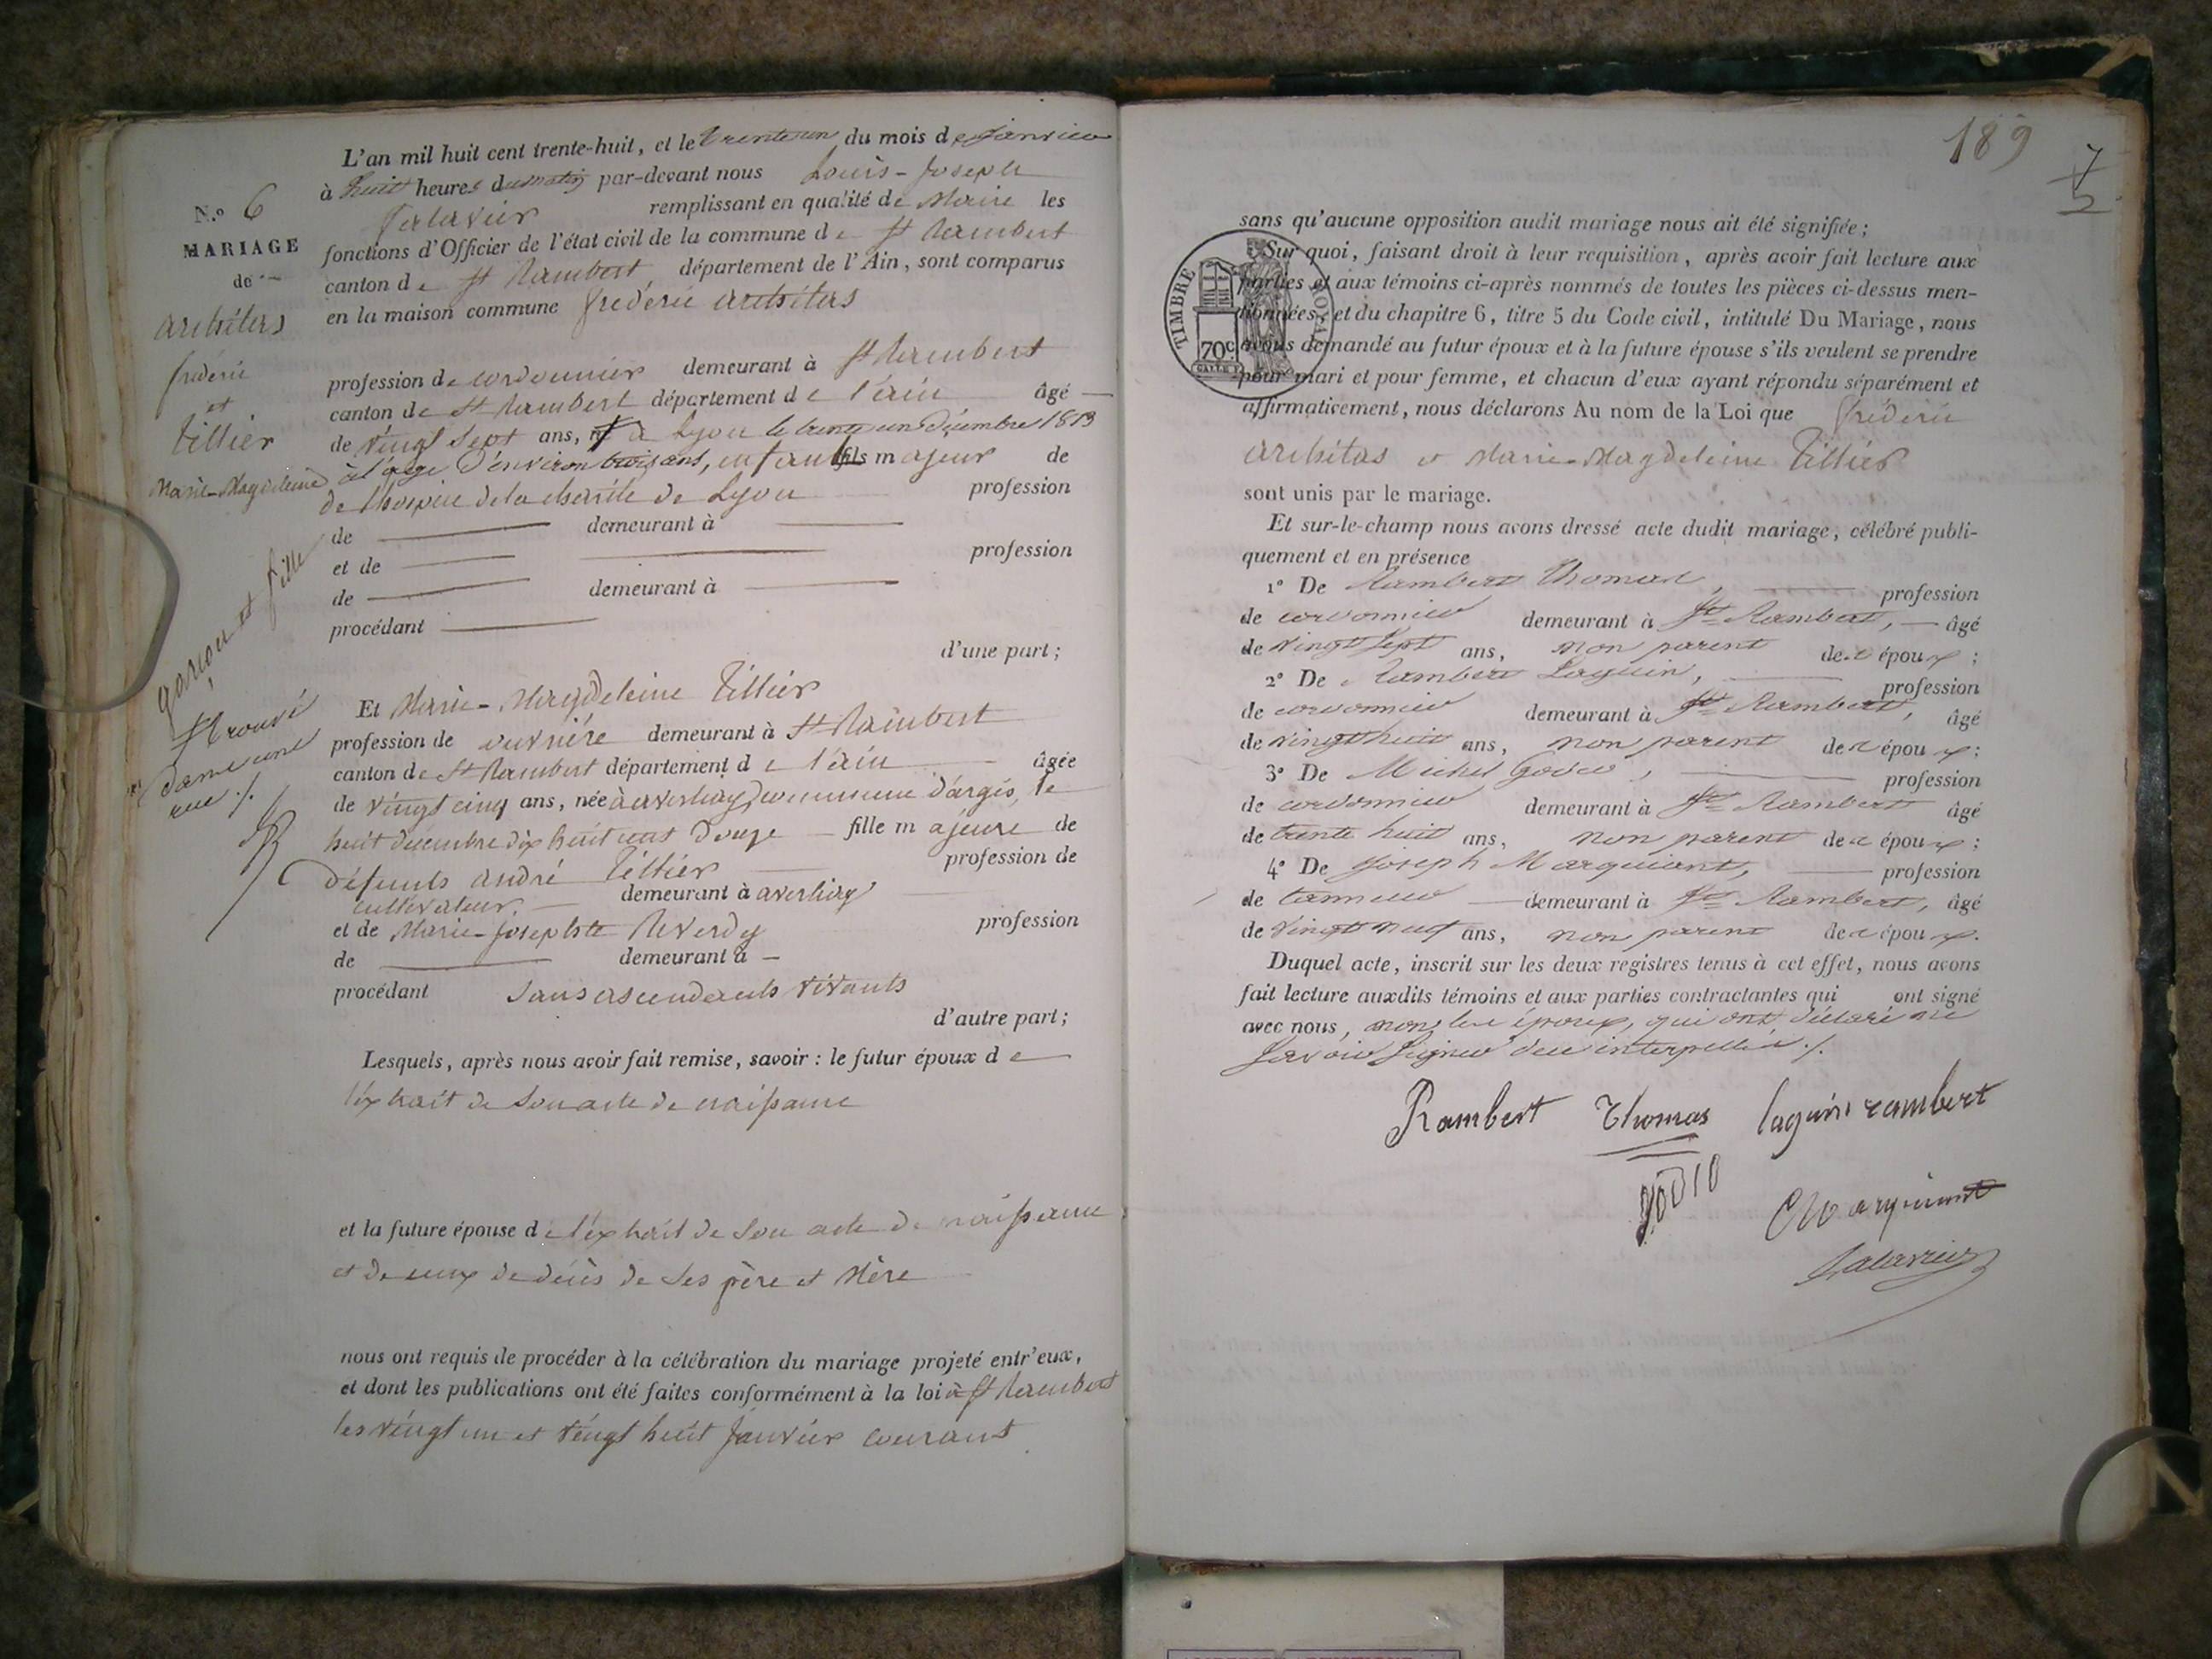 L'an mil huit cent trente-huit, et le trente un du mois de janvier
à huit heures du matin par-devant nous Louis-Joseph
remplissant en qualité de Maire les
fonctions d'Officier de l'état civil de la commune de St Rambert
canton de St Rambert département de l'Ain, sont comparus
en la maison commune frédéric architas
profession de cordonnier demeurant à St Rambert
canton de St Rambert département de l'ain âgé
de vingt sept ans, à Lyon le trente un Décembre 1813
à l'age d'environ trois ans, enfant fils majeur de
de l'hospice de la charité de Lyon profession
de demeurant à
et de profession
de demeurant à
procédant
d'une part ;
Et Marie-Magdeleine Tillier
profession de ouvrière demeurant à St Rambert
canton de St Rambert département de l'ain âgée
de vingt cinq ans, née à averliaz, commune d'argis, le
huit décembre dix huit cent douze fille majeure de
défunts andré Tillier profession de
cultivateur, demeurant à averliaz
et de Marie-Josephte Reverdy profession
de demeurant à
procédant sans ascendants vivants
d'autre part ;
Lesquels, après nous avoir fait remise, savoir : le futur époux de
l'extrait de son acte de naissance
et la future épouse de l'extrait de son acte de naissance
et de ceux de décès de ses père et Mère
nous ont requis de procéder à la célébration du mariage projeté entr'eux,
et dont les publications ont été faites conformément à la loi à St Rambert
les vingt un et vingt huit Janvier courant
N.o 6
MARIAGE
de
architas
frédéric
et
Tillier
Marie-Magdeleine
garçon et fille
trouvé
dans une
rue ./.
189
7
2
sans qu'aucune opposition audit mariage nous ait été signifiée ;
Sur quoi, faisant droit à leur requisition, après avoir fait lecture aux
parties et aux témoins ci-après nommés de toutes les pièces ci-dessus men-
tionnées, et du chapitre 6, titre 5 du Code civil, intitulé Du Mariage, nous
avons demandé au futur époux et à la future épouse s'ils veulent se prendre
pour mari et pour femme, et chacun d'eux ayant répondu séparément et
affirmativement, nous déclarons Au nom de la Loi que frédéric
architas et Marie-Magdeleine Tillier
sont unis par le mariage.
Et sur-le-champ nous avons dressé acte dudit mariage, célébré publi-
quement et en présence
1° De Rambert Thomas, profession
de cordonnier demeurant à St Rambert, âgé
de vingt sept ans, non parent des époux ;
2° De Rambert Laguin, profession
de cordonnier demeurant à St Rambert, âgé
de vingt huit ans, non parent des époux ;
3° De Michel profession
de cordonnier demeurant à St Rambert âgé
de trente huit ans, non parent des époux ;
4° De Joseph Marquiant, profession
de tanneur demeurant à St Rambert, âgé
de vingt neuf ans, non parent des époux.
Duquel acte, inscrit sur les deux registres tenus à cet effet, nous avons
fait lecture auxdits témoins et aux parties contractantes qui ont signé
avec nous, non les époux, qui ont déclaré ne
savoir signer de ce interpellés ./.
Rambert Thomas laguin rambert
Marquiant
TIMBRE ROYAL
70c